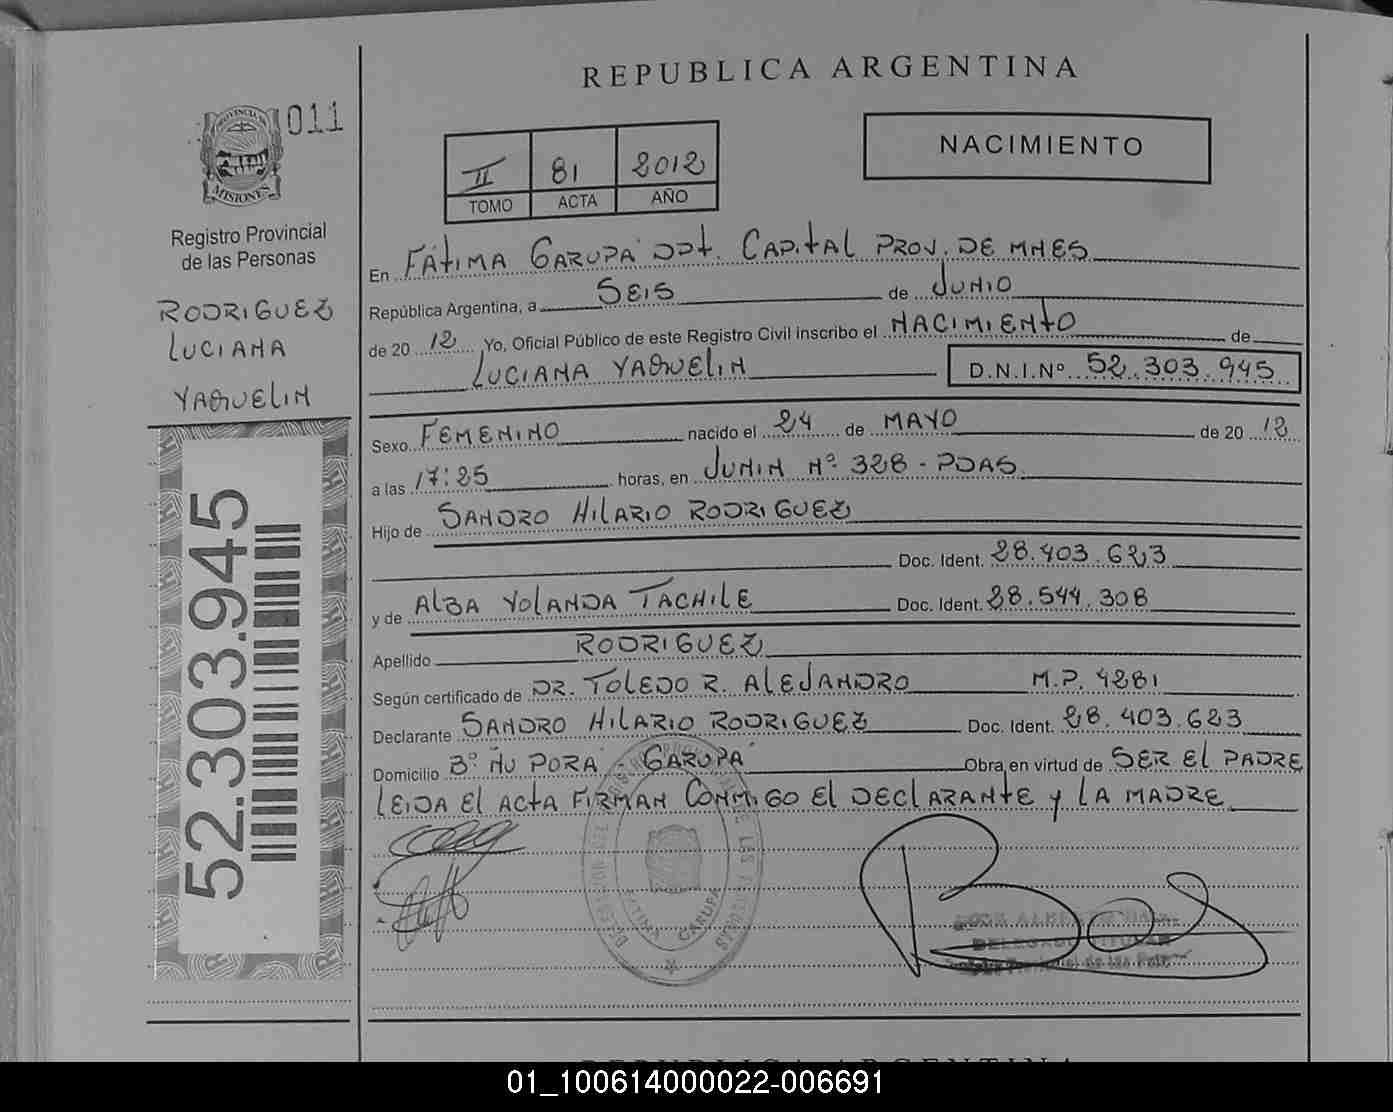 REPUBLICA ARGENTINA
011
PROVINCIA DE
MISIONES
Registro Provincial
de las Personas
RODRIGUEZ
LUCIANA
YAQUELIN
52.303.945
NACIMIENTO
II 81 2012
TOMO ACTA AÑO
En FÁTIMA GARUPÁ DPT. CAPITAL PROV. DE MNES
República Argentina, a SEIS de JUNIO
de 20 12 Yo, Oficial Público de este Registro Civil inscribo el NACIMIENTO de
LUCIANA YAQUELIN D.N.I.Nº 52.303.945
Sexo FEMENINO nacido el 24 de MAYO de 20 12
a las 17:25 horas, en JUNIN Nº 328 - PDAS
Hijo de SANDRO HILARIO RODRIGUEZ
Doc. Ident. 28.403.623
y de ALBA YOLANDA TACHILE Doc. Ident. 28.544.308
Apellido RODRIGUEZ
Según certificado de DR. TOLEDO R. ALEJANDRO M.P. 4281
Declarante SANDRO HILARIO RODRIGUEZ Doc. Ident. 28.403.623
Domicilio Bº ÑU PORÁ - GARUPÁ Obra en virtud de SER EL PADRE
LEIDA EL ACTA FIRMAN CONMIGO EL DECLARANTE Y LA MADRE
FATIMA GARUPA
DELEGADO TITULAR
Provincial de las Pers.
REPUBLICA ARGENTINA
01_100614000022-006691